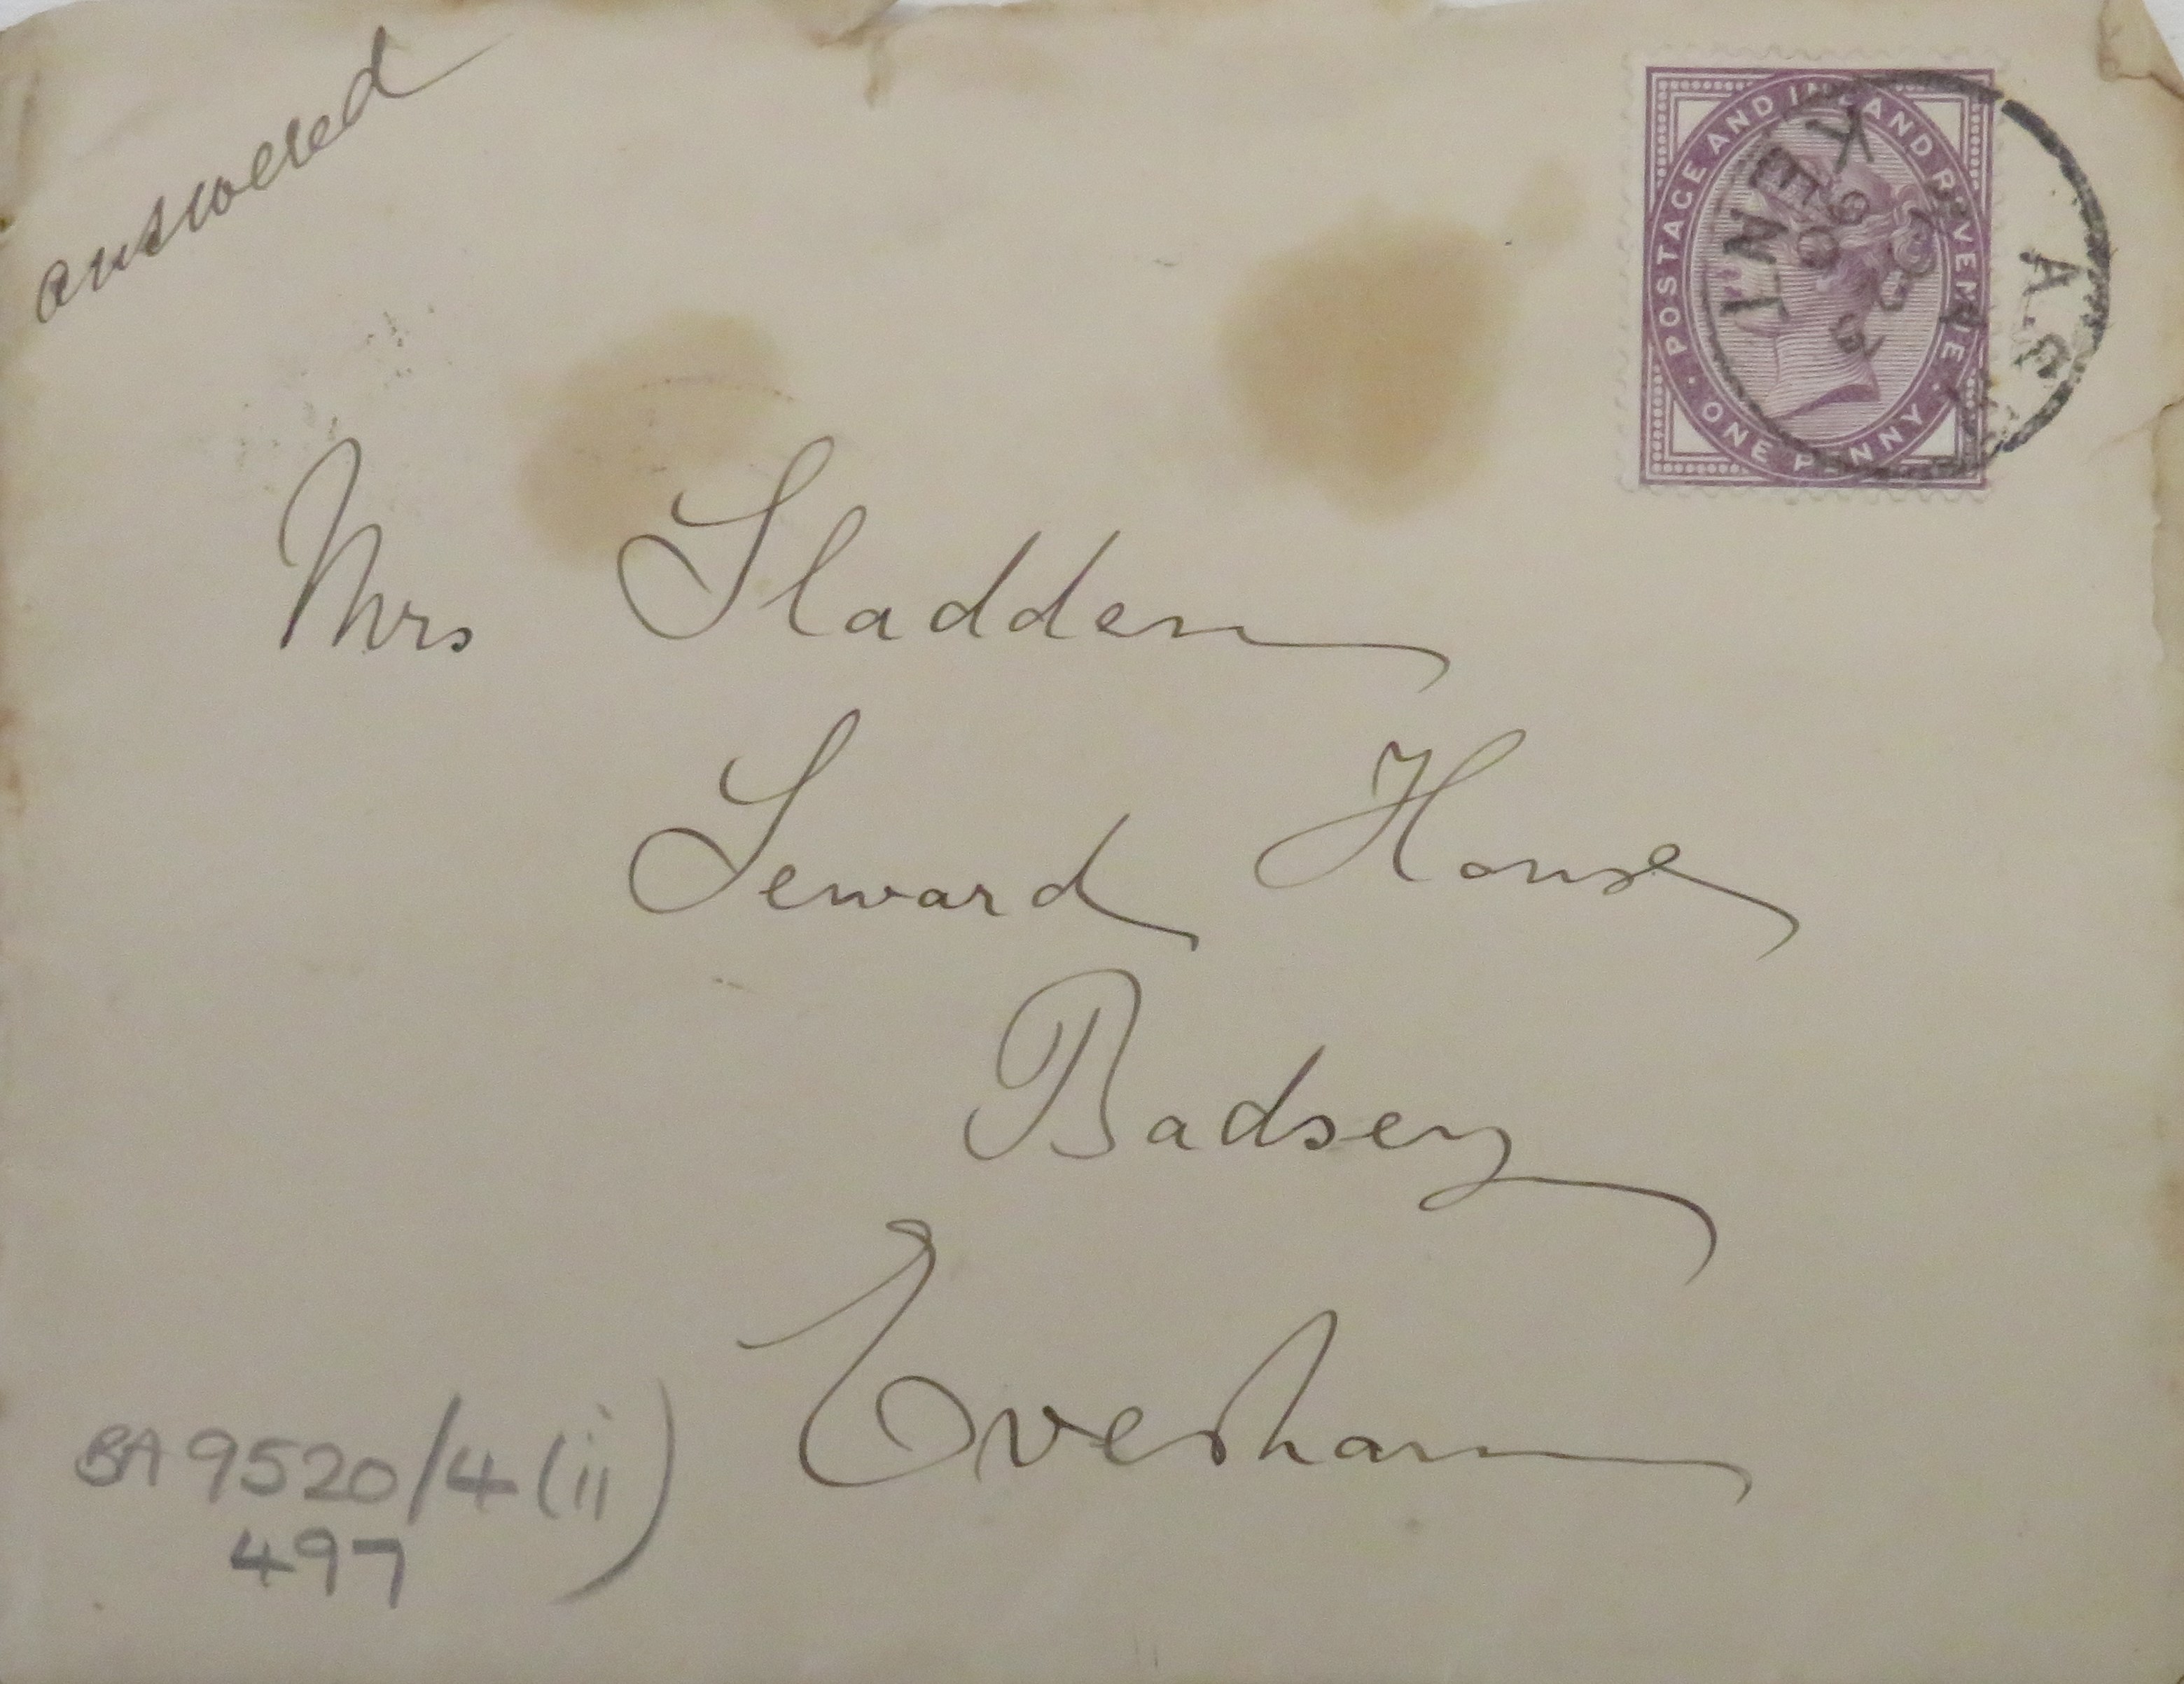 answered
POSTAGE AND INLAND REVENUE
ONE PENNY
KENT
Mrs Sladden
Seward House
Badsey
Evesham
BA 9520/4 (ii)
497